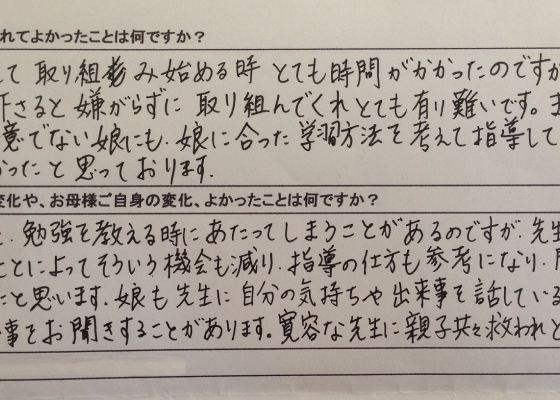 れてよかったことは何ですか？
して 取り組み始める時 とても時間がかかったのですが
下さると 嫌がらずに 取り組んでくれとても有り難いです。
意でない娘にも、娘に合った学習方法を考えて指導して
かったと思っております。
変化や、お母様ご自身の変化、よかったことは何ですか？
と、勉強を教える時にあたってしまうことがあるのですが、先生
ことによってそういう機会も減り、指導の仕方も参考になり、
こと思います。娘も先生に自分の気持ちや出来事を話している
事をお聞きすることがあります。寛容な先生に親子共々救われと